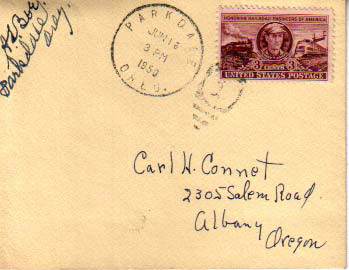 Parkdale
Oreg.
PARKDALE
JUN 13
3 PM
1950
OREG.
HONORING RAILROAD ENGINEERS OF AMERICA
3 CENTS 3
UNITED STATES POSTAGE
Carl H. Connet
2305 Salem Road.
Albany
Oregon